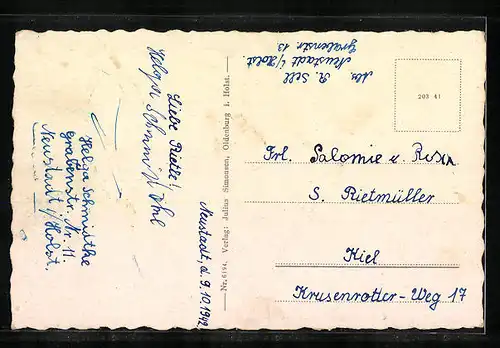 Liebe
Helga Schmidt
Neustadt, d. 9.10.1942
Helga Schmidtke
Grabenstr. Nr. 11.
Neustadt/Holst.
Nr. 6194, Verlag: Julius Simonsen, Oldenburg i. Holst.
Abs. R. Sell
Neustadt i/Holst.
Grabenstr. 13
203 41
Frl. Salomie u. Rosa
S. Rietmüller
Kiel
Krusenrotter-Weg 17